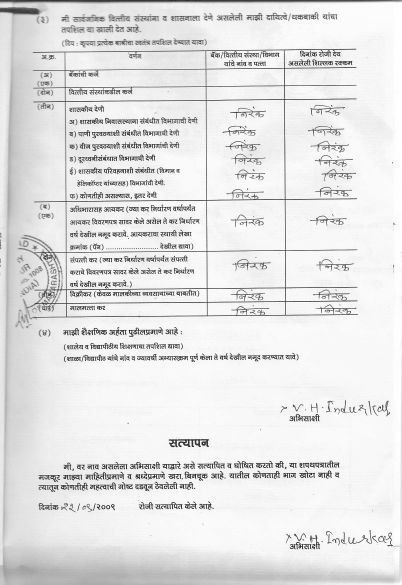 (३) मी सार्वजनिक वित्तीय संस्थांना व शासनाला देणे असलेली माझी दायित्वे/थकबाकी यांचा
तपशिल या खाली देत आहे.
(टिप : कृपया प्रत्येक बाबीचा स्वतंत्र तपशिल देण्यात यावा)
अ.क्र. वर्णन बँक/वित्तीय संस्था/विभाग यांचे नाव व पत्ता दिनांक रोजी देय असलेली शिल्लक रक्कम
(अ)
(एक) बँकांची कर्जे
(दोन) वित्तीय संस्थांकडील कर्ज
(तीन) शासकीय देणी निरंक निरंक
अ) शासकीय निवासस्थाना संबंधीत विभागाची देणी
ब) पाणी पुरवठ्याशी संबंधीत विभागाची देणी निरंक निरंक
क) वीज पुरवठ्याशी संबंधीत विभागाची देणी निरंक निरंक
ड) दूरध्वनीसंबंधात विभागाची देणी निरंक निरंक
ई) शासकीय परिवहनाशी संबंधीत (विमान व निरंक निरंक
हेलिकॉप्टर यांच्यासह) विभागांची देणी.
फ) कोणतीही असल्यास, इतर देणी निरंक निरंक
(ब)
(एक) अधिभारासह आयकर (ज्या कर निर्धारण वर्षापर्यंत
आयकर विवरणपत्र सादर केले असेल ते कर निर्धारण निरंक निरंक
वर्ष देखील नमूद करावे. आयकराचा स्थायी लेखा
क्रमांक (पॅन) ........................ देखील द्यावा)
संपत्ती कर (ज्या कर निर्धारण वर्षापर्यंत संपत्ती निरंक निरंक
कराचे विवरणपत्र सादर केले असेल ते कर निर्धारण
वर्ष देखील नमूद करावे.)
(तीन) विक्रीकर (केवळ मालकीच्या व्यवसायाच्या बाबतीत) निरंक निरंक
(चार) मालमत्ता कर निरंक निरंक
(४) माझी शैक्षणिक अर्हता पुढीलप्रमाणे आहे :
(शालेय व विद्यापीठीय शिक्षणाचा तपशिल द्यावा)
(शाळा/विद्यापीठ यांचे नांव व ज्यावर्षी अभ्यासक्रम पूर्ण केला ते वर्ष देखील नमूद करण्यात यावे)
V. H. Indurkar
अभिसाक्षी
सत्यापन
मी, वर नाव असलेला अभिसाक्षी याद्वारे असे सत्यापित व घोषित करतो की, या शपथपत्रातील
मजकूर माझ्या माहितीप्रमाणे व श्रध्देप्रमाणे खरा बिनचूक आहे. यातील कोणताही भाग खोटा नाही व
त्यातून कोणतीही महत्वाची गोष्ट दडवून ठेवलेली नाही.
दिनांक /०९/२००९ रोजी सत्यापित केले आहे.
V. H. Indurkar
अभिसाक्षी